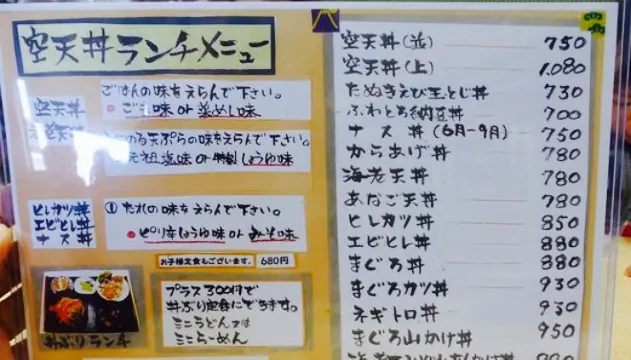 空天丼ランチメニュー
空天丼
ごはんの味をえらんで下さい。
ごま味 or 薬めし味
る天ぷらの味をえらんで下さい。
元祖塩味 or 特製しょうゆ味
ヒレカツ丼
エビヒレ丼
ナス丼
① たれの味をえらんで下さい。
ピリ辛しょうゆ味 or みそ味
お子様定食もございます。 680円
プラス300円で
丼ぶり定食にできます。
ミニうどん又は
ミニらーめん
丼ぶりランチ
空天丼(並) 750
空天丼(上) 1,080
たぬきえび玉とじ丼 730
ふわとろ納豆丼 700
ナス丼(6月-9月) 750
からあげ丼 780
海老天丼 780
あなご天丼 780
ヒレカツ丼 850
エビヒレ丼 880
まぐろ丼 880
まぐろカツ丼 930
ネギトロ丼 930
まぐろ山かけ丼 950